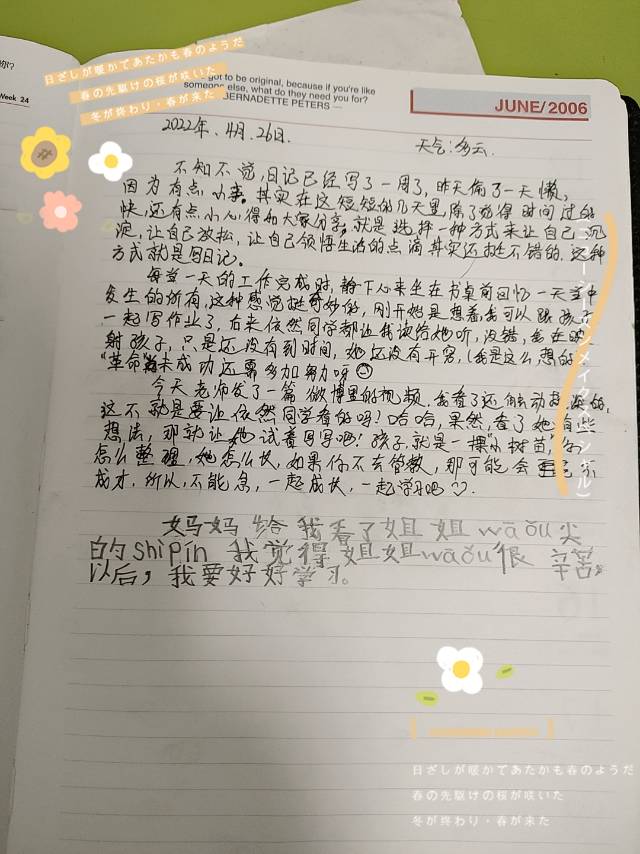 你?
Week 24
日ざしが暖かであたかも春のようだ
春の先駆けの桜が咲いた
冬が終わり・春が来た
got to be original, because if you're like
someone else, what do they need you for?
BERNADETTE PETERS —
JUNE/2006
2022年.4月.26日.
天气:多云.
不知不觉,日记已经写了一周了,昨天偷了一天懒,
因为有点小事。其实在这短短的几天里,除了觉得时间过的
快,还有点小心得和大家分享,就是选择一种方式来让自己沉
淀,让自己放松,让自己领悟生活的点滴其实还挺不错的.这种
方式就是写日记。
每当一天的工作完成时,静下心来坐在书桌前回忆一天当中
发生的所有,这种感觉挺奇妙的,刚开始是想着我可以跟孩子
一起写作业了,后来依然同学都让我读给她听,没错,我在映
射孩子,只是还没有到时间,她还没有开窍,(我是这么想的)
"革命"尚未成功还需多加努力呀
今天老师发了一篇微博里的视频,我看了还

这不就是要让依然同学看的吗?哈哈,果然,看了她有些
想法,那就让她试着写写吧!孩子就是一棵"小树苗",你
怎么整理,她怎么长,如果你不去管教,那可能会
成才,所以,不能急,一起成长,一起学习吧♡.
妈妈给我看了姐姐wā ǒu尖
的shipín 我觉得姐姐wā ǒu很辛苦
以后,我要好好学习。
日ざしが暖かであたかも春のようだ
春の先駆けの桜が咲いた
冬が終わり・春が来た